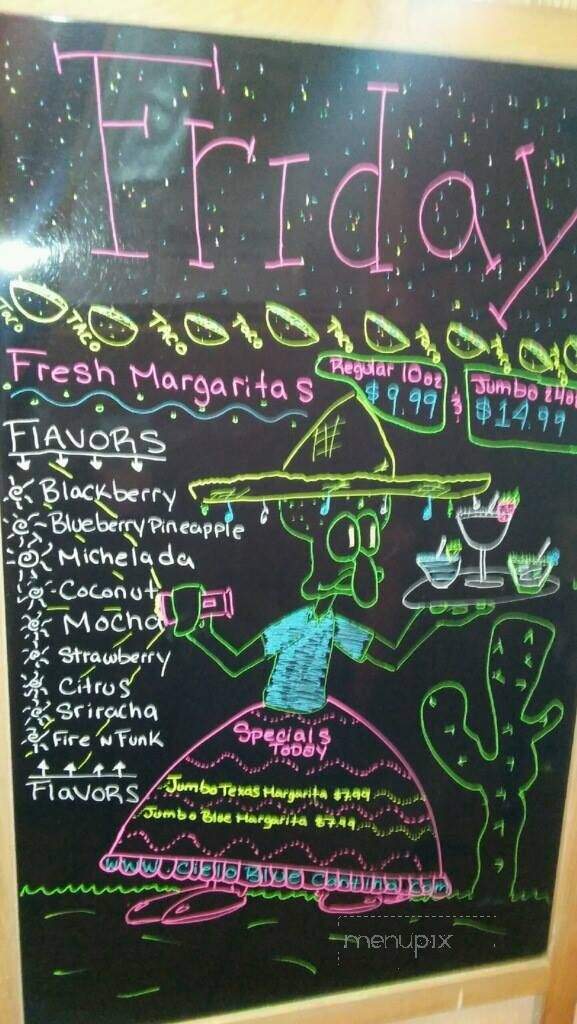 Friday
TACO TACO TACO TACO TACO TACO TACO
Fresh Margaritas
Regular 10oz
$9.99
Jumbo 24oz
$14.99
FlAVORS
Blackberry
Blueberry Pineapple
Michelada
Coconut
Mocha
Strawberry
Citrus
Sriracha
Fire N Funk
FlavORS
Specials
TODAY
Jumbo Texas Margarita $7.99
Jumbo Blue Margarita $7.99
www.CieloBlueCantina.com
menupix